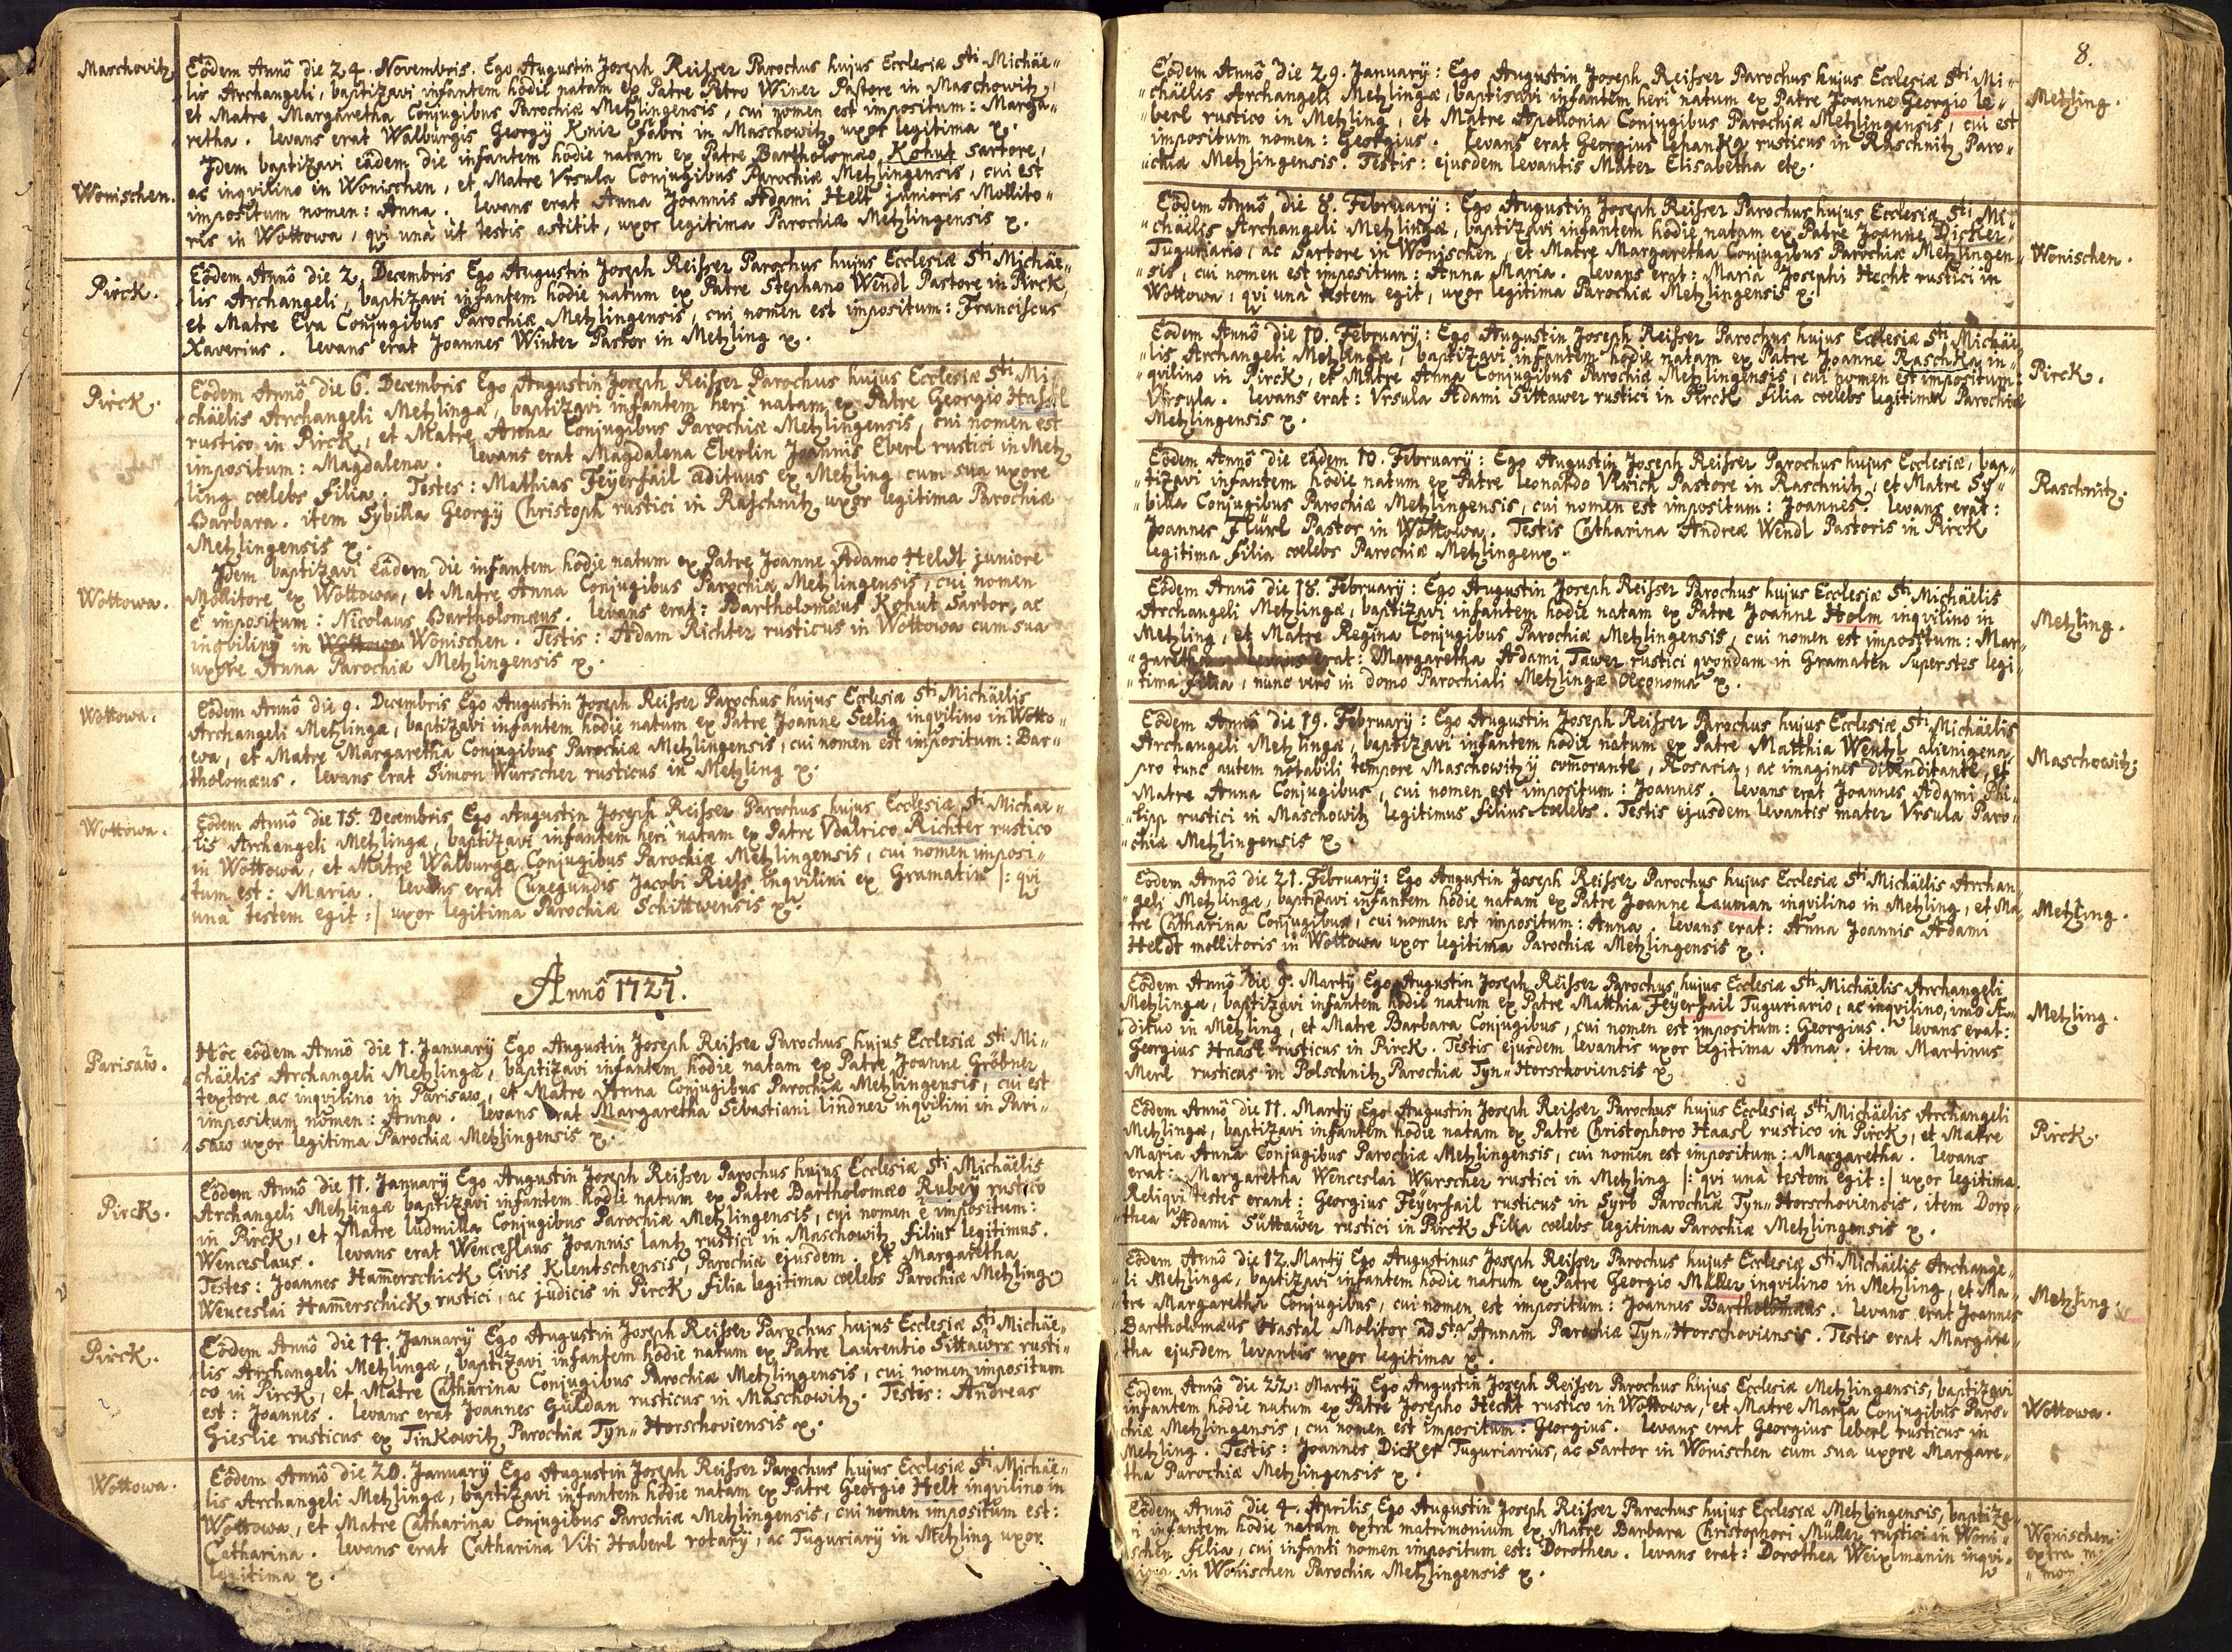 Maschovitz
Eôdem Annô die 24. Novembris. Ego Augustin Joseph Reißer Parochus hujus Ecclesiæ Sti Michäe„
lis Archangeli, baptizavi infantem hodie natam ex Patre Petro Winer Pastore in Maschowitz,
et Matre Margaretha Conjugibus Parochiæ Metzlingensis, cui nomen est impositum: Marga„
retha. levans erat Walburgis Georgÿ Knir fabri in Maschowitz uxor legitima x.
Wonischen.
Idem baptizavi eâdem die infantem hodie natam ex Patre Bartholomæo Kohut Sartore,
ac inqvilino in Wonischen, et Matre Vrsula Conjugibus Parochiæ Metzlingensis, cui est
impositum nomen: Anna. levans erat Anna Joannis Adami Helt junioris Mollito„
ris in Wottowa, qvi unà ùt testis astitit, uxor legitima Parochiæ Metzlingensis x.
Pirck.
Eôdem Annô die 2. Decembris Ego Augustin Joseph Reißer Parochus hujus Ecclesiæ Sti Michäe„
lis Archangeli, baptizavi infantem hodie natum ex Patre Stephano Wendl Pastore in Pirck,
et Matre Eva Conjugibus Parochiæ Metzlingensis, cui nomen est impositum: Franciscus
Xaverius. levans erat Joannes Winter Pastor in Metzling x.
Pirck.
Eôdem Annô die 6. Decembris Ego Augustin Joseph Reißer Parochus hujus Ecclesiæ Sti Mi
chäelis Archangeli Metzlingæ, baptizavi infantem heri natam ex Patre Georgio
rustico in Pirck, et Matre Anna Conjugibus Parochiæ Metzlingensis, cui nomen est
impositum: Magdalena. levans erat Magdalena Eberlin Joannis Eberl rustici in Metz
ling cœlebs filia. Testes: Mathias Feÿerfail ædituus ex Metzling cum sua uxore
Barbara. item Sybilla Georgÿ Christoph rustici in Raschnitz uxor legitima Parochiæ
Metzlingensis x.
Wottowa.
Idem baptizavi eâdem die infantem hodie natum ex Patre Joanne Adamo Heldt juniore
Mollitore ex Wottowa, et Matre Anna Conjugibus Parochiæ Metzlingensis, cui nomen
e impositum: Nicolaus Bartholomæus. levans erat: Bartholomæus Kohut Sartor, ac
inqvilinq in Wottowa Wonischen. Testis: Adam Richter rusticus in Wottowa cum sua
uxore Anna Parochiæ Metzlingensis x.
Wottowa.
Eôdem Annô die 9. Decembris Ego Augustin Joseph Reißer Parochus hujus Ecclesiæ Sti Michäelis
Archangeli Metzlingæ, baptizavi infantem hodie natum ex Patre Joanne Seelig inqvilino in Wotto„
wa, et Matre Margaretha Conjugibus Parochiæ Metzlingensis, cui nomen est impositum: Bar„
tholomæus. levans erat Simon Wurscher rusticus in Metzling x.
Wottowa.
Eôdem Annô die 15. Decembris Ego Augustin Joseph Reißer Parochus hujus Ecclesiæ Sti Michäe„
lis Archangeli Metzlingæ, baptizavi infantem heri natam ex Patre Vdalrico Richter rustico
in Wottowa, et Matre Walburga Conjugibus Parochiæ Metzlingensis, cui nomen imposi„
tum est: Maria. levans erat Cunegundis Jacobi Rieß inqvilini ex Gramatin |: qvi
unà testem egit :| uxor legitima Parochiæ Schittwensis x.
Annô 1727.
Parisaw.
Hôc eôdem Annô die 1. Januarÿ Ego Augustin Joseph Reißer Parochus hujus Ecclesiæ Sti Mi„
chäelis Archangeli Metzlingæ, baptizavi infantem hodie natam ex Patre Joanne Gröbner
textore ac inqvilino in Parisaw, et Matre Anna Conjugibus Parochiæ Metzlingensis, cui est
impositum nomen: Anna. levans erat Margaretha Sebastiani lindner inqvilini in Pari„
saw uxor legitima Parochiæ Metzlingensis x.
Pirck.
Eôdem Annô die 11. Januarÿ Ego Augustin Joseph Reißer Parochus hujus Ecclesiæ Sti Michäelis
Archangeli Metzlingæ baptizavi infantem hodie natum ex Patre Bartholomæo Rubeÿ rustico
in Pirck, et Matre ludmilla Conjugibus Parochiæ Metzlingensis, cui nomen e impositum:
Wenceslaus. levans erat Wenceslaus Joannis lantz rustici in Maschowitz filius legitimus.
Testes: Joannes Hamerschick Civis Klentschensis, Parochiæ ejusdem. et Margaretha
Wenceslai Hamerschick rustici, ac judicis in Pirck filia legitima cœlebs Parochiæ Metzling.
Pirck.
Eôdem Annô die 14. Januarÿ Ego Augustin Joseph Reißer Parochus hujus Ecclesiæ Sti Michäe„
lis Archangeli Metzlingæ, baptizavi infantem hodie natum ex Patre Laurentio Sittawer rusti„
co in Pirck, et Matre Catharina Conjugibus Parochiæ Metzlingensis, cui nomen impositum
est: Joannes. levans erat Joannes Güldan rusticus in Maschowitz. Testis: Andreas
Gieslie rusticus ex Tinkowitz Parochiæ Tyn„Horschoviensis x.
Wottowa.
Eôdem Annô die 20. Januarÿ Ego Augustin Joseph Reißer Parochus hujus Ecclesiæ Sti Michäe„
lis Archangeli Metzlingæ, baptizavi infantem hodie natam ex Patre Georgio Helt inqvilino in
Wottowa, et Matre Catharina Conjugibus Parochiæ Metzlingensis, cui nomen impositum est:
Catharina. levans erat Catharina Viti Haberl rotarÿ, ac Tuguriarÿ in Metzling uxor
legitima x.
8.
Metzling.
Eôdem Annô die 29. Januarÿ: Ego Augustin Joseph Reißer Parochus hujus Ecclesiæ Sti Mi„
„chäelis Archangeli Metzlingæ, baptizavi infantem heri natum ex Patre Joanne Georgio le„
„berl rustico in Metzling, et Matre Apollonia Conjugibus Parochiæ Metzlingensis, cui est
impositum nomen: Georgius. levans erat Georgius lehanka rusticus in Raschnitz Paro„
„chiæ Metzlingensis. Testis: ejusdem levantis Mater Elisabetha etx.
Wonischen.
Eôdem Annô die 8. Februarÿ: Ego Augustin Joseph Reißer Parochus hujus Ecclesiæ Sti Mi„
„chäelis Archangeli Metzlingæ, baptizavi infantem hodie natam ex Patre Joanne Dicker,
Tuguriario, ac Sartore in Wonischen, et Matre Margaretha Conjugibus Parochiæ Metzlingen„
„sis, cui nomen est impositum: Anna Maria. levans erat: Maria Josephi Hecht rustici in
Wottowa, qvi unà testem egit, uxor legitima Parochiæ Metzlingensis x.
Pirck.
Eôdem Annô die 10. Februarÿ: Ego Augustin Joseph Reißer Parochus hujus Ecclesiæ Sti Michäe„
„lis Archangeli Metzlingæ, baptizavi infantem hodie natam ex Patre Joanne Raschka in„
„qvilino in Pirck, et Matre Anna Conjugibus Parochiæ Metzlingensis, cui nomen est impositum:
Vrsula. levans erat: Vrsula Adami Sittawer rustici in Pirck filia cœlebs legitima Parochiæ
Metzlingensis x.
Raschnitz.
Eôdem Annô die eâdem 10. Februarÿ: Ego Augustin Joseph Reißer Parochus hujus Ecclesiæ, bap„
„tizavi infantem hodie natum ex Patre leonardo Vlrich Pastore in Raschnitz, et Matre Sy„
„billa Conjugibus Parochiæ Metzlingensis, cui nomen est impositum: Joannes. levans erat:
Joannes Flürl Pastor in Wottowa. Testis Catharina Andreæ Wendl Pastoris in Pirck
legitima filia cœlebs Parochiæ Metzlingenx.
Metzling.
Eôdem Annô die 18. Februarÿ: Ego Augustin Joseph Reißer Parochus hujus Ecclesiæ Sti Michäelis
Archangeli Metzlingæ, baptizavi infantem hodie natam ex Patre Joanne Holm inqvilino in
Metzling, et Matre Regina Conjugibus Parochiæ Metzlingensis, cui nomen est impositum: Mar„
„garetha levans erat: Margaretha Adami Tawer rustici qvondam in Gramaten Superstes legi„
„tima filia, nunc verò in domo Parochiali Metzlingæ Oeconoma x.
Maschowitz.
Eôdem Annô die 19. Februarÿ: Ego Augustin Joseph Reißer Parochus hujus Ecclesiæ Sti Michäelis
Archangeli Metzlingæ, baptizavi infantem hodie natum ex Patre Matthia Wentzl alienigena
pro tunc autem notabili tempore Maschowitzÿ comorante, Rosaria, ac imagines divenditante, et
Matre Anna Conjugibus, cui nomen est impositum: Joannes. levans erat Joannes Adami Phi„
„lipp rustici in Maschowitz legitimus filius cœlebs. Testis ejusdem levantis mater Vrsula Paro„
„chiæ Metzlingensis x.
Metzling.
Eôdem Annô die 21. Februarÿ: Ego Augustin Joseph Reißer Parochus hujus Ecclesiæ Sti Michäelis Archan„
„geli Metzlingæ, baptizavi infantem hodie natam ex Patre Joanne Lauman inqvilino in Metzling, et Ma„
tre Catharina Conjugibus, cui nomen est impositum: Anna. levans erat: Anna Joannis Adami
Heldt mollitoris in Wottowa uxor legitima Parochiæ Metzlingensis x.
Metzling.
Eôdem Annô die 9. Martÿ Ego Augustin Joseph Reißer Parochus hujus Ecclesiæ Sti Michäelis Archangeli
Metzlingæ, baptizavi infantem hodie natum ex Patre Matthia Feÿerfail Tuguriario, ac inqvilino, imò Æ„
dituo in Metzling, et Matre Barbara Conjugibus, cui nomen est impositum: Georgius. levans erat:
Georgius Haasl rusticus in Pirck. Testis ejusdem levantis uxor legitima Anna. item Martinus
Merl rusticus in Polschnitz Parochiæ Tyn„Horschoviensis x.
Pirck.
Eôdem Annô die 11. Martÿ Ego Augustin Joseph Reißer Parochus hujus Ecclesiæ Sti Michäelis Archangeli
Metzlingæ, baptizavi infantem hodie natam ex Patre Christophoro Haasl rustico in Pirck, et Matre
Maria Anna Conjugibus Parochiæ Metzlingensis, cui nomen est impositum: Margaretha. levans
erat: Margaretha Wenceslai Wurscher rustici in Metzling |: qvi unà testem egit :| uxor legitima.
Reliqvi testes erant: Georgius Feÿerfail rusticus in Syrb Parochiæ Tyn„Horschoviensis. item Doro„
„thea Adami Süttawer rustici in Pirck filia cœlebs legitima Parochiæ Metzlingensis x.
Metzling.
Eôdem Annô die 12. Martÿ Ego Augustinus Joseph Reißer Parochus hujus Ecclesiæ Sti Michäelis Archange„
li Metzlingæ, baptizavi infantem hodie natum ex Patre Georgio Müller inqvilino in Metzling, et Ma„
tre Margaretha Conjugibus, cui nomen est impositum: Joannes Bartholomæus. levans erat Joannes
Bartholomæus Hastal Molitor ad Stã Annam Parochiæ Tyn„Horschoviensis. Testis erat Margare„
tha ejusdem levantis uxor legitima x.
Wottowa.
Eôdem Annô die 22. Martÿ Ego Augustin Joseph Reißer Parochus hujus Ecclesiæ Metzlingensis, baptizavi
infantem hodie natum ex Patre Josepho Hecht rustico in Wottowa, et Matre Maria Conjugibus Paro„
chiæ Metzlingensis, cui nomen est impositum: Georgius. levans erat Georgius leberl rusticus in
Metzling. Testis: Joannes Dicker Tuguriarius, ac Sartor in Wonischen cum sua uxore Margare„
tha Parochiæ Metzlingensis x.
Wonischen:
extra m
Eôdem Annô die 4. Aprilis Ego Augustin Joseph Reißer Parochus hujus Ecclesiæ Metzlingensis, baptiza„
vi infantem hodie natam extra matrimonium ex Matre Barbara Christophori Müller rustici in Woni„
schen filia, cui infanti nomen impositum est: Dorothea. levans erat: Dorothea Weixlmanin inqvi„
in Wonischen Parochiæ Metzlingensis x.